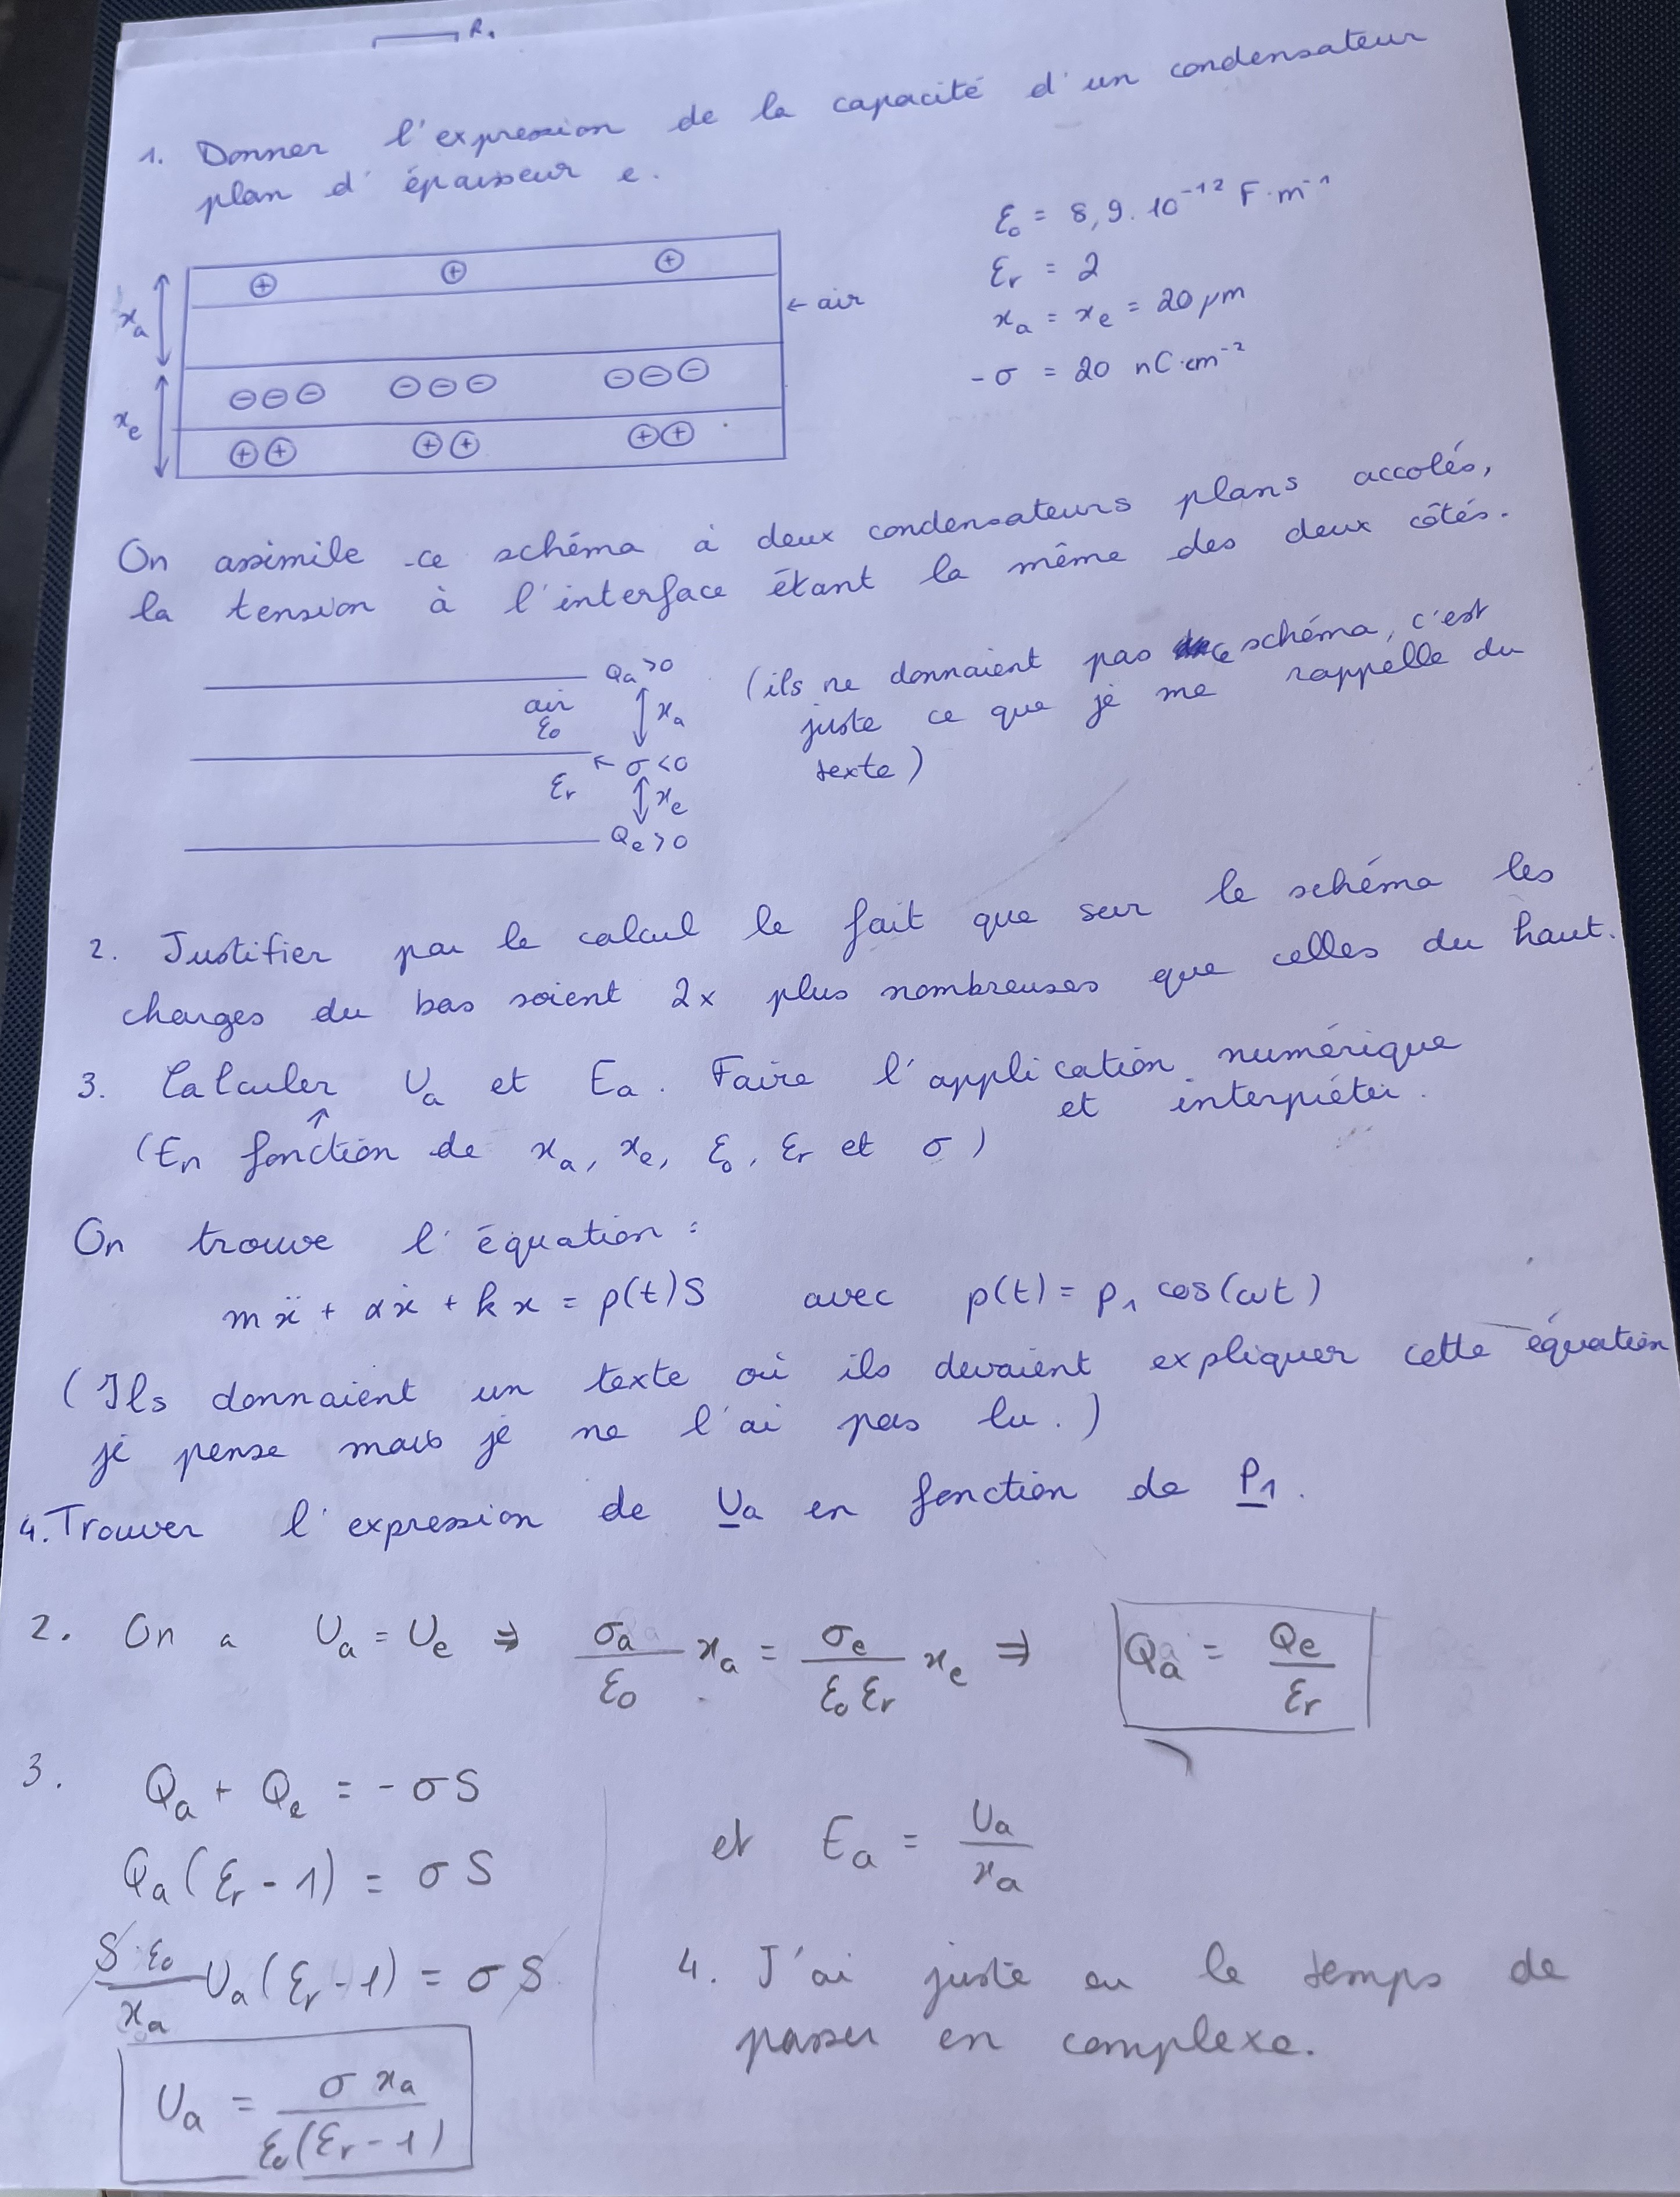 R₁
1. Donner l'expression de la capacité d'un condensateur
plan d'épaisseur e.
ε₀ = 8,9.10⁻¹² F.m⁻¹
εr = 2
xa = xe = 20 μm
-σ = 20 nC.cm⁻²
⊕ ⊕ ⊕
xa
← air
⊖⊖⊖ ⊖⊖⊖ ⊖⊖⊖
xe
⊕⊕ ⊕⊕ ⊕⊕
On assimile ce schéma à deux condensateurs plans accolés,
la tension à l'interface étant la même des deux côtés.
Qa>0
air
ε₀
xa
← σ<0
εr
xe
Qe>0
(ils ne donnaient pas ce schéma, c'est
juste ce que je me rappelle du
texte)
2. Justifier par le calcul le fait que sur le schéma les
charges du bas soient 2x plus nombreuses que celles du haut.
3. Calculer Ua et Ea. Faire l'application numérique
et interpréter.
↑
(En fonction de xa, xe, ε₀, εr et σ)
On trouve l'équation :
mẍ + αẋ + kx = p(t)S avec p(t) = p₁ cos(ωt)
(Ils donnaient un texte où ils devaient expliquer cette équation
je pense mais je ne l'ai pas lu.)
4. Trouver l'expression de Ua en fonction de P1.
2. On a Ua = Ue ⇒ σa/ε₀ xa = σe/ε₀εr xe ⇒ Qa = Qe/εr
3.
Qa + Qe = - σS
Qa(εr - 1) = σS
Sε₀/xa Ua(εr - 1) = σS
Ua = σ xa/ε₀(εr - 1)
et Ea = Ua/xa
4. J'ai juste eu le temps de
passer en complexe.